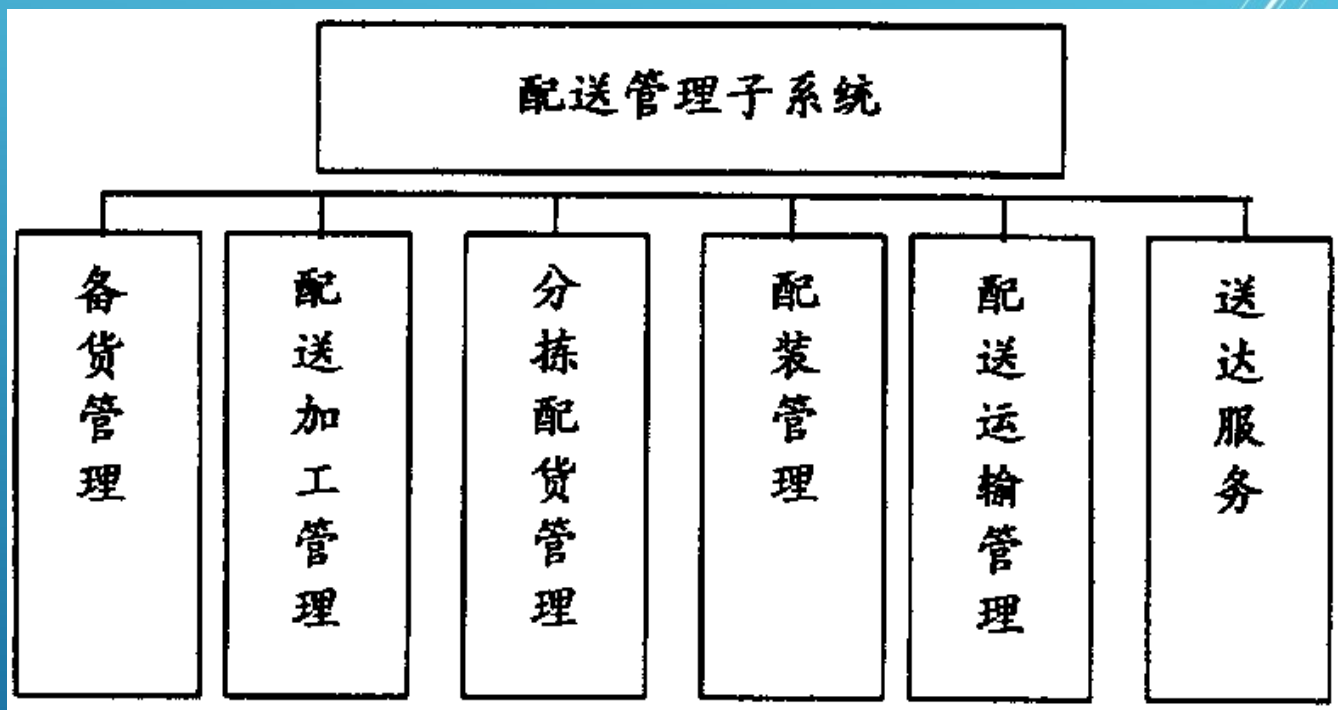 配送管理子系统
备货管理
配送加工管理
分拣配货管理
配装管理
配送运输管理
送达服务